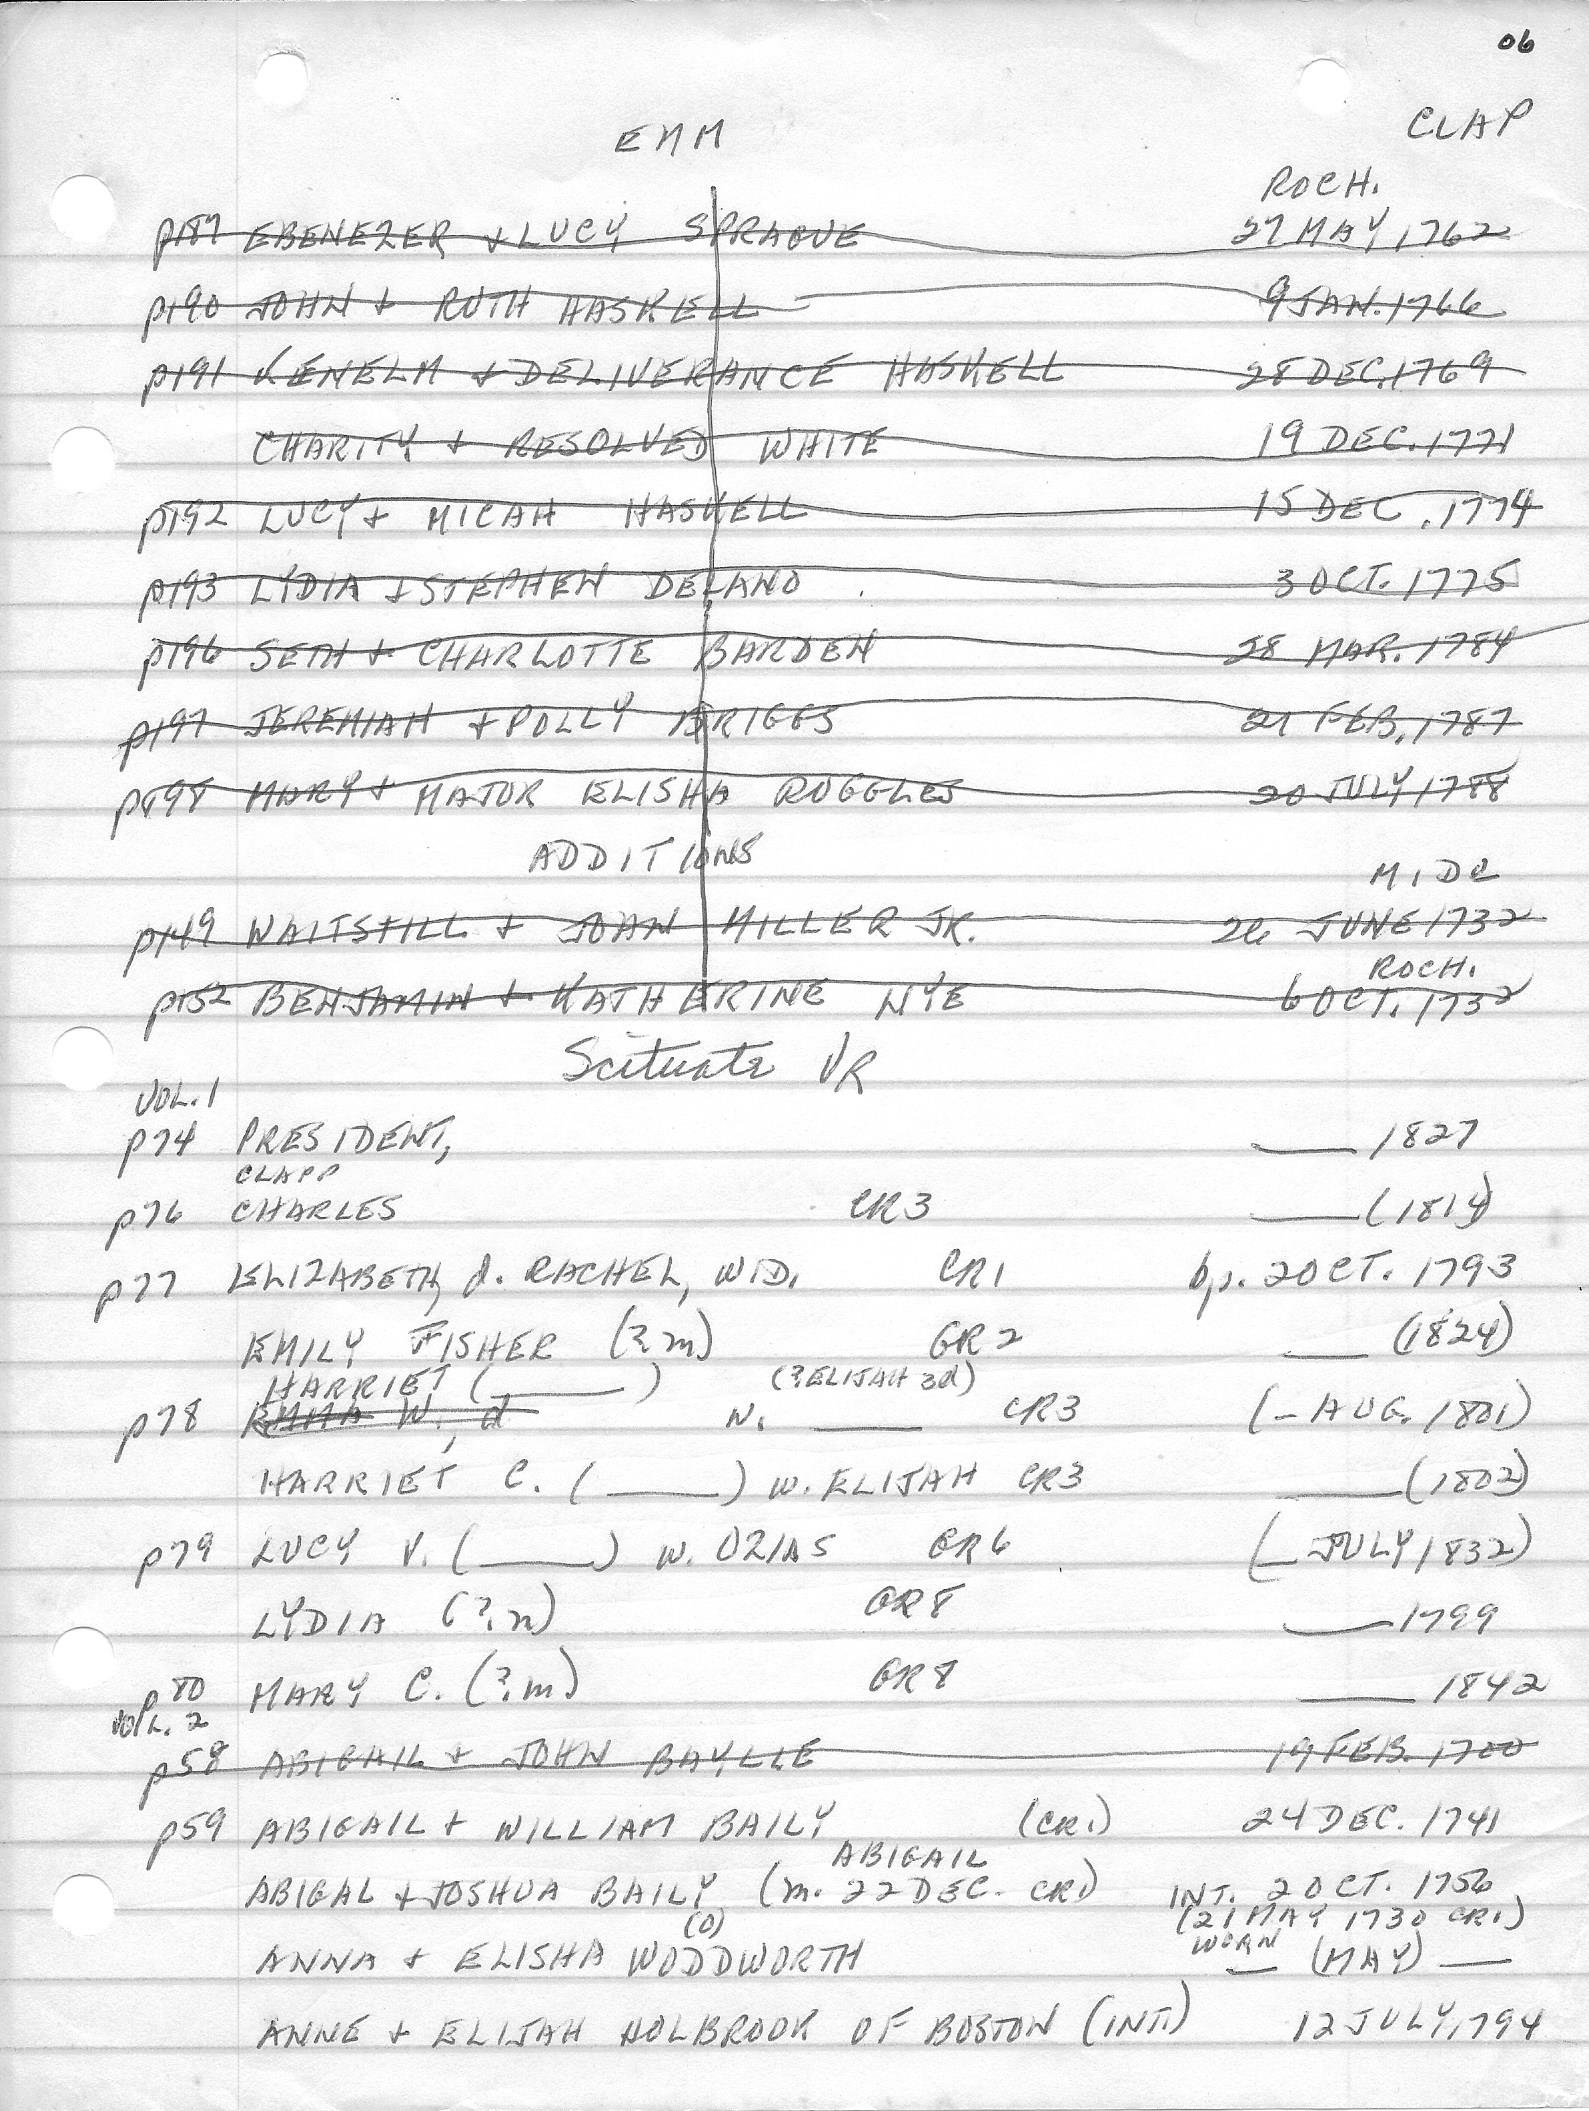 06
EMM CLAP
ROCH.
p187 EBENEZER + LUCY SPRAGUE 27 MAY, 1762
p190 JOHN + RUTH HASKELL 9 JAN. 1766
p191 KENELM + DELIVERANCE HASKELL 28 DEC. 1769
CHARITY + RESOLVED WHITE 19 DEC. 1771
p192 LUCY + MICAH HASKELL 15 DEC. 1774
p193 LYDIA + STEPHEN DELANO 3 OCT. 1775
p196 SETH + CHARLOTTE BARDEN 28 MAR. 1784
p197 JEREMIAH + POLLY BRIGGS 21 FEB. 1787
p198 MARY + MAJOR ELISHA RUGGLES 20 JULY 1788
ADDITIONS
MIDD
p149 WAITSTILL + JOHN MILLER JR. 26 JUNE 1732
ROCH.
p152 BENJAMIN + KATHERINE NYE 6 OCT. 1732
Scituate VR
VOL. 1
p74 PRESIDENT, ___ 1827
CLAPP
p76 CHARLES CR3 ___ (1814)
p77 ELIZABETH, d. RACHEL, WID. CR1 bp. 20 OCT. 1793
EMILY FISHER (?m) GR2 ___ (1824)
HARRIET (___) (?ELIJAH 3d)
p78 EMMA W., d N. ___ CR3 (- AUG. 1801)
HARRIET C. (___) w. ELIJAH CR3 ___ (1802)
p79 LUCY V. (___) w. OZIAS GR6 (_ JULY 1832)
LYDIA (?m) GR8 ___ 1799
p80 MARY C. (?m) GR8 ___ 1842
VOL. 2
p58 ABIGAIL + JOHN BAYLLE 19 FEB. 1700
p59 ABIGAIL + WILLIAM BAILY (CR1) 24 DEC. 1741
ABIGAIL
ABIGAL + JOSHUA BAILY (m. 22 DEC. CR1) INT. 2 OCT. 1756
(O) (21 MAY 1730 CR1)
WORN
ANNA + ELISHA WODDWORTH _ (MAY) __
ANNE + ELIJAH HOLBROOK OF BOSTON (INT.) 12 JULY, 1794